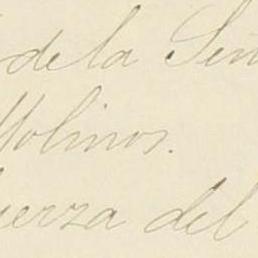 de la Señ
Molinos.
uerza del